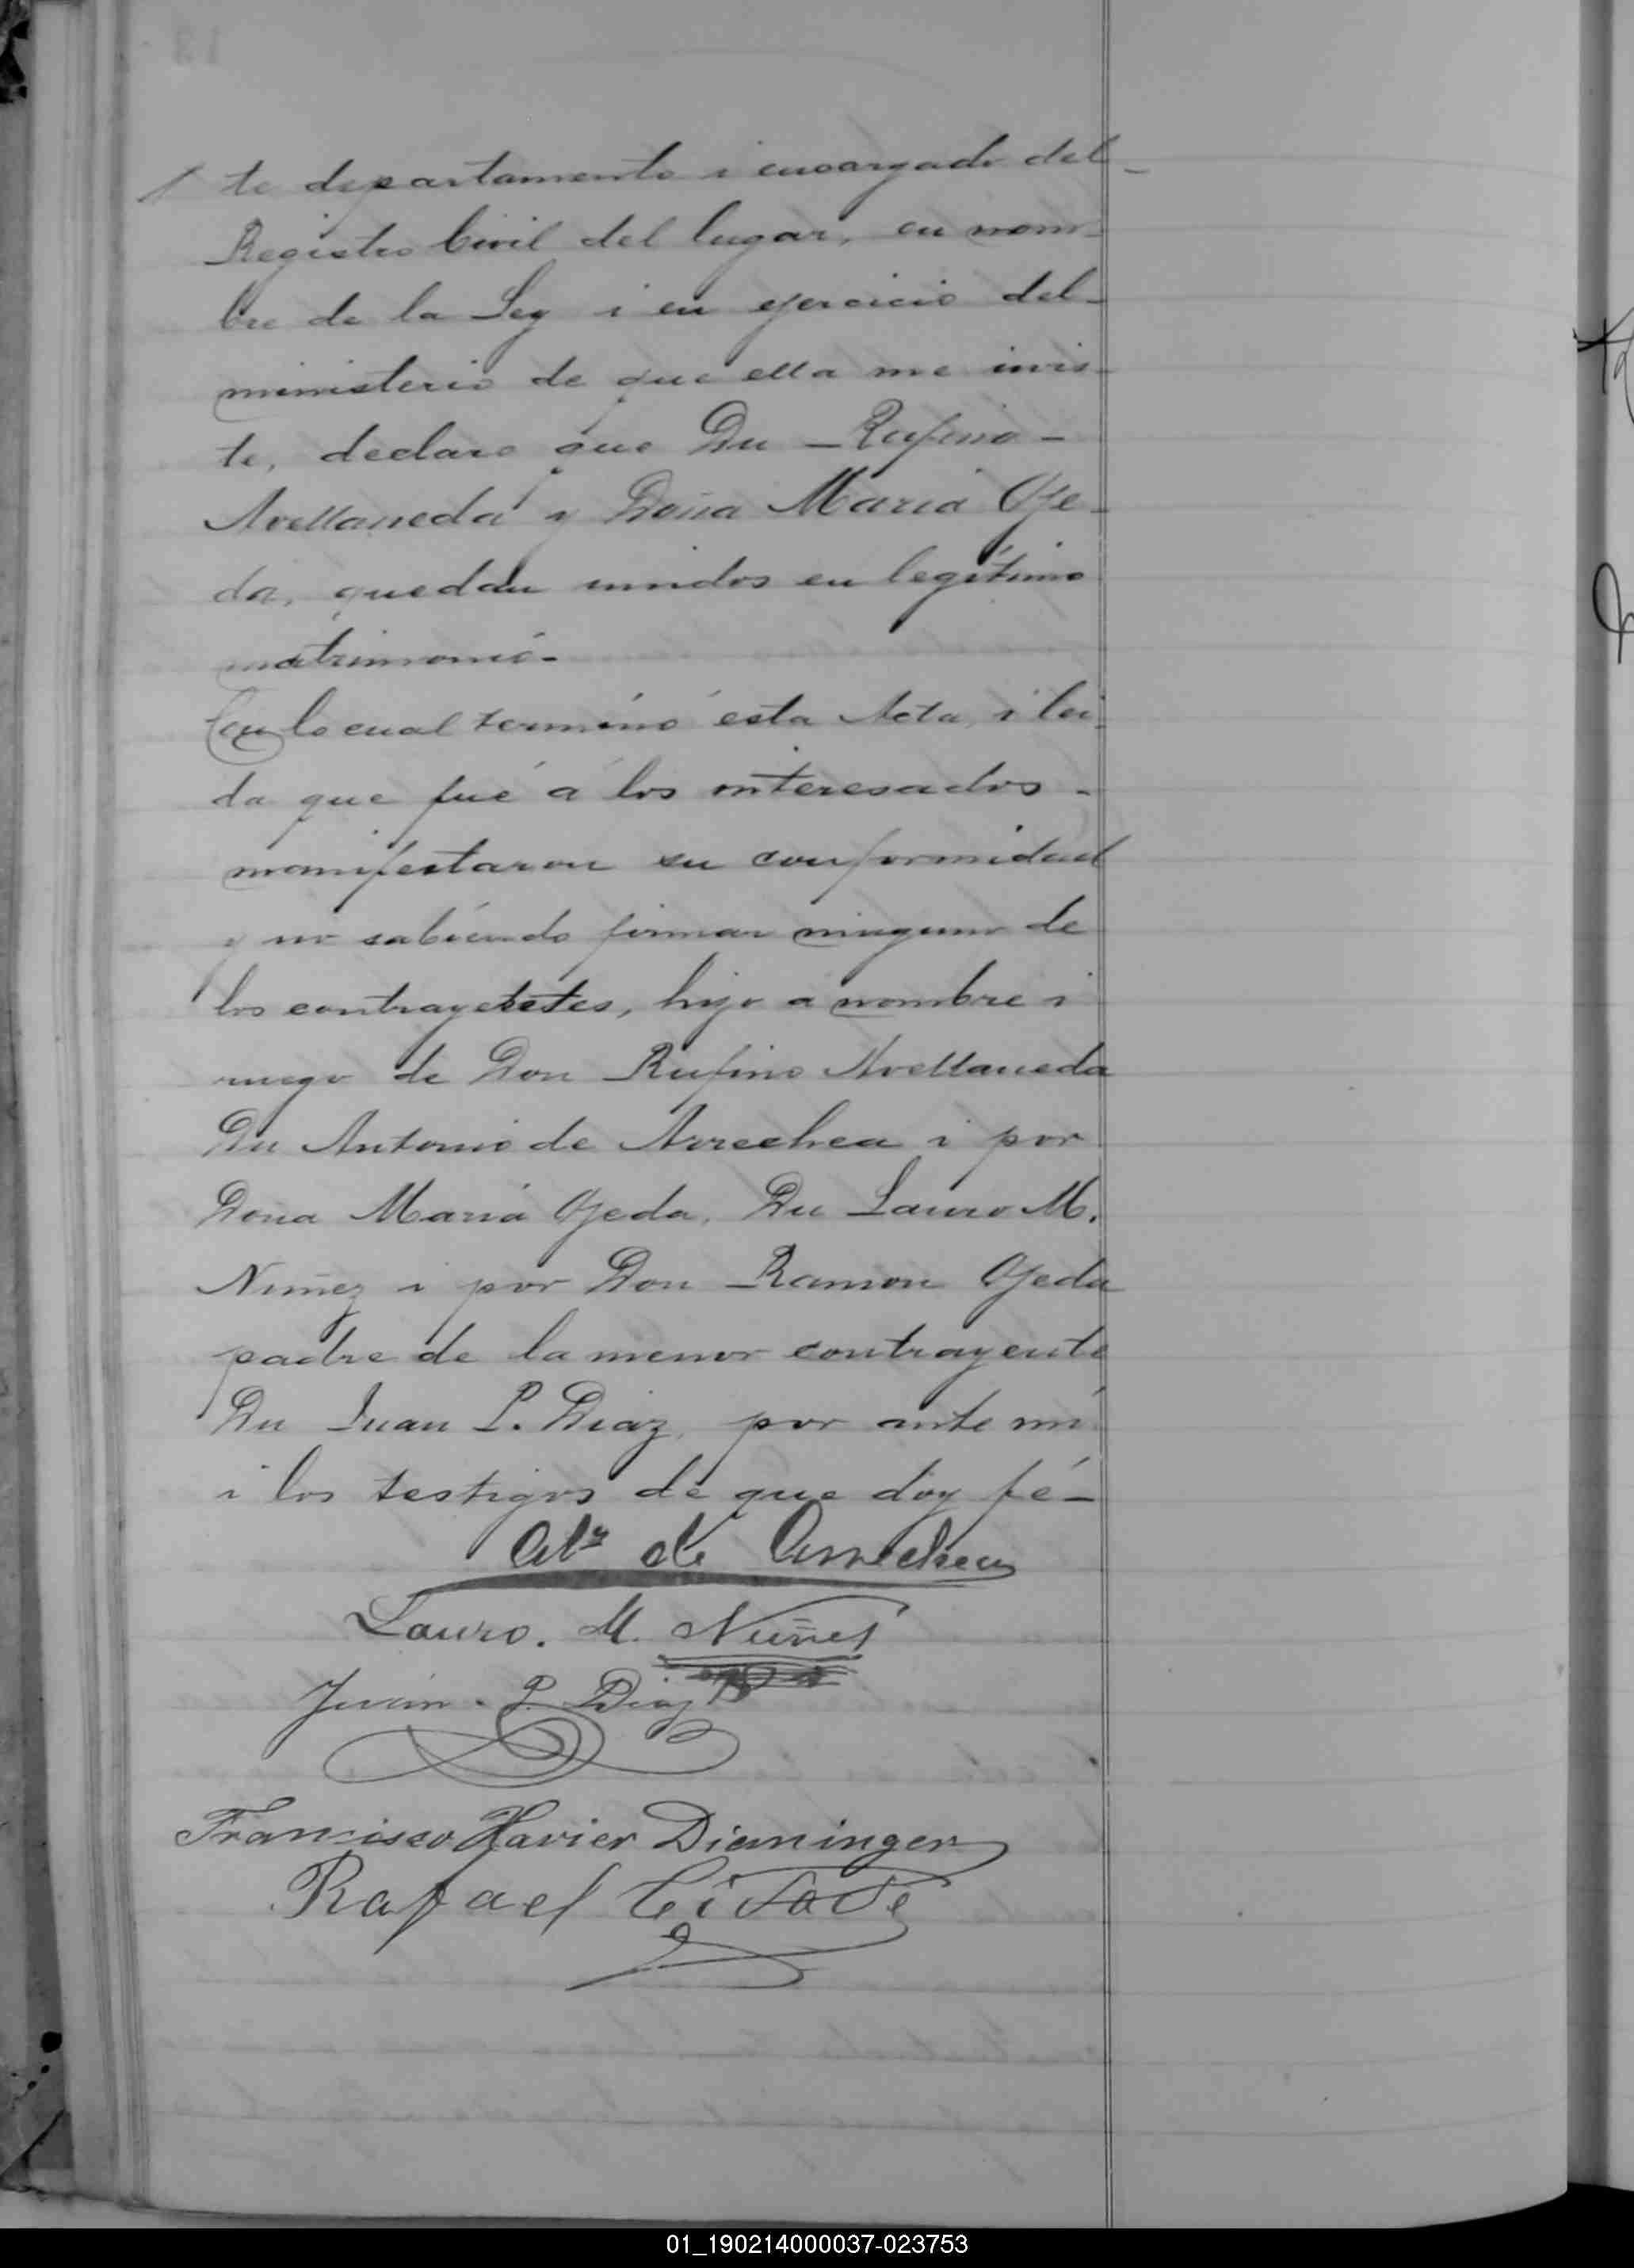 te departamento i encargado del
Registro Civil del lugar, en nom-
bre de la Ley i en ejercicio del-
ministerio de que ella me invis-
te, declaro que Dn - Rufino -
Avellaneda y Doña Maria Oje-
da, quedan unidos en legítimo
matrimonio-
Con lo cual terminó esta Acta, i lei-
da que fué á los interesados -
manifestaron su conformidad
y no sabiendo firmar ninguno de
los contrayentes, hizo a nombre i
ruego de Don Rufino Avellaneda
Dn Antonio de Arrechea i por
Doña Maria Ojeda, Dn Lauro M.
Nuñez i por Don Ramon Ojeda
padre de la menor contrayente
Dn Juan P. Diaz, por ante mi
i los testigos de que doy fé-
de Arrechea
Lauro. M. Nuñez
Juan. P. Diaz
Francisco Xavier Dieminger
Rafael
01_190214000037-023753